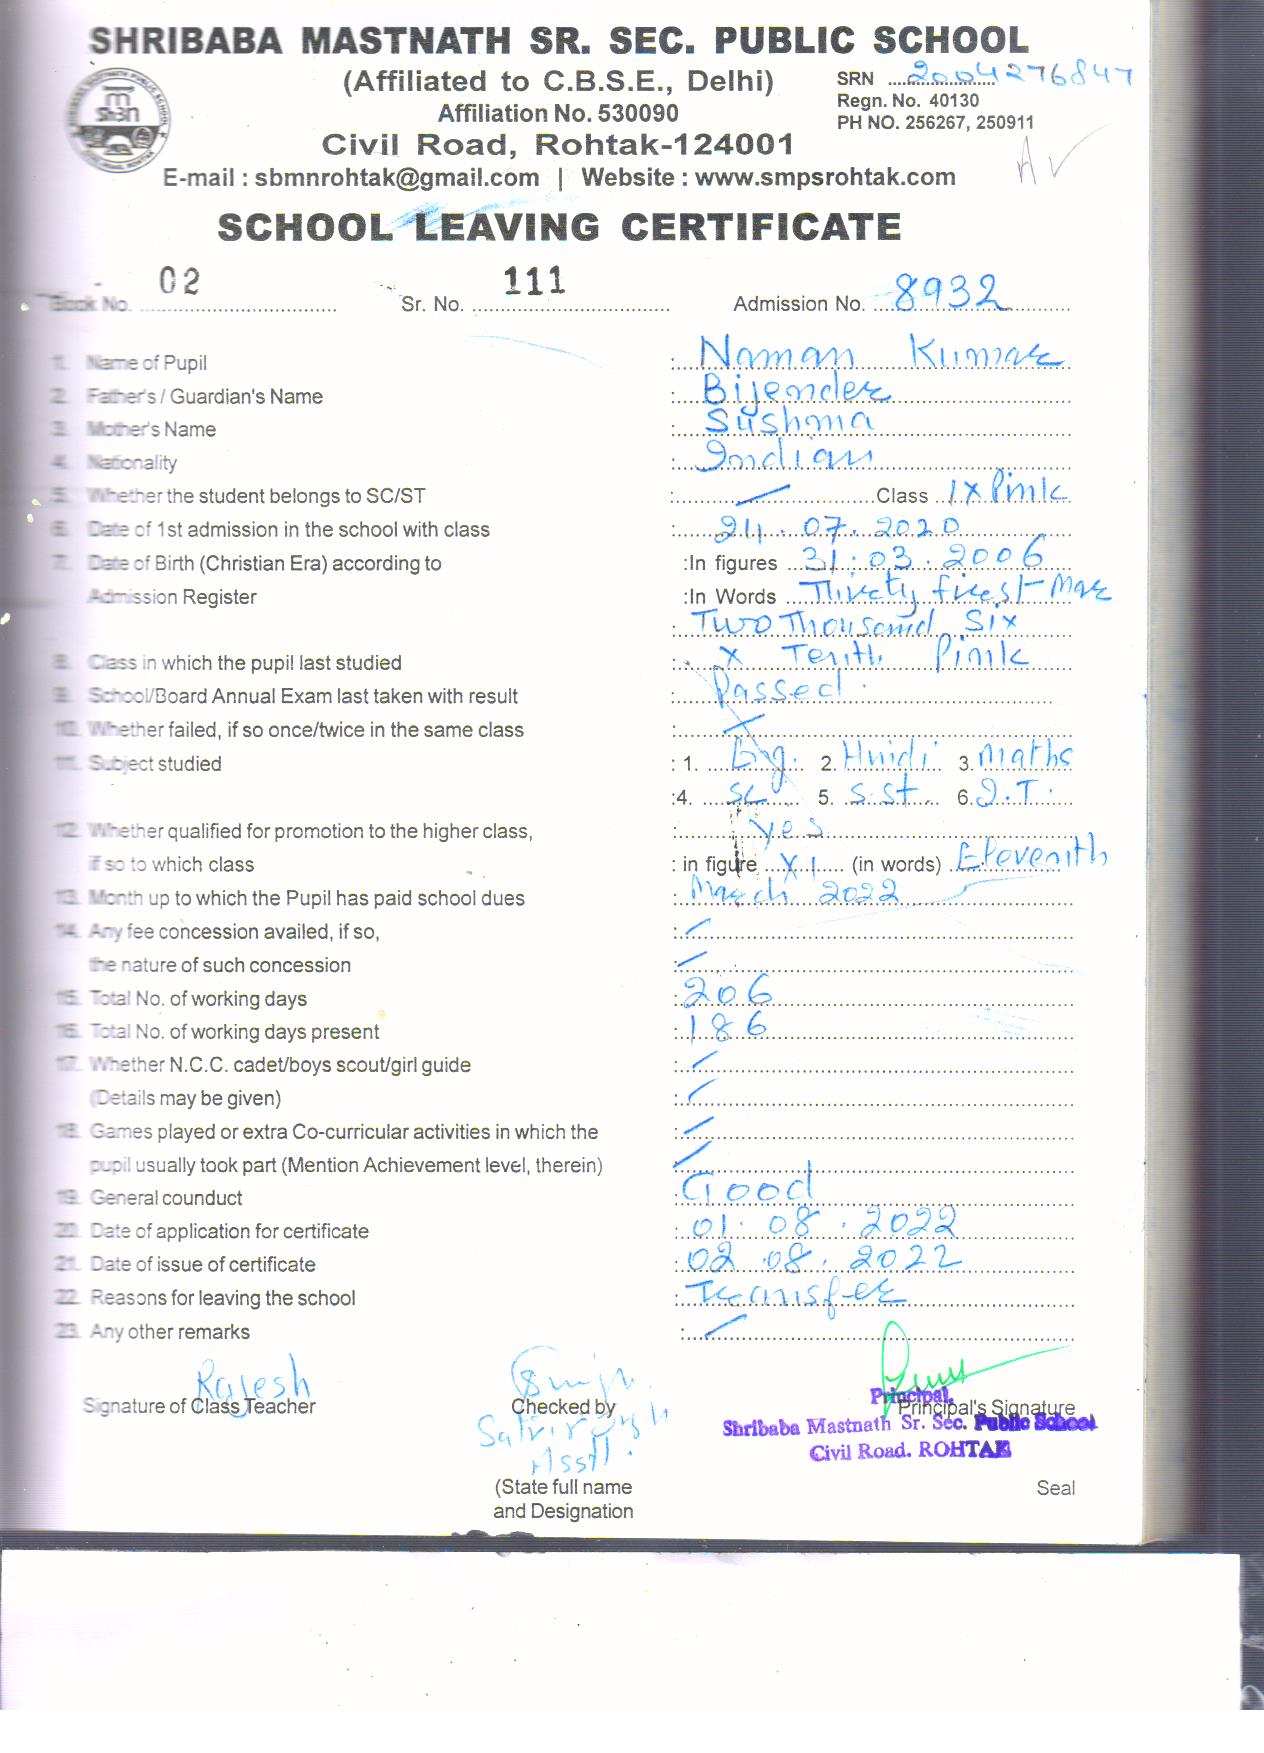 SHRIBABA MASTNATH SR. SEC. PUBLIC SCHOOL
(Affiliated to C.B.S.E., Delhi)
SRN 2004276847
Affiliation No. 530090
Regn. No. 40130
PH NO. 256267, 250911
Civil Road, Rohtak-124001
E-mail : sbmnrohtak@gmail.com | Website : www.smpsrohtak.com
SCHOOL LEAVING CERTIFICATE
Book No. 02 Sr. No. 111 Admission No. 8932
1. Name of Pupil : Naman Kumar
2. Father's / Guardian's Name : Bijender
3. Mother's Name : Sushma
4. Nationality : Indian
5. Whether the student belongs to SC/ST : — Class IX Pink
6. Date of 1st admission in the school with class : 24.07.2020
7. Date of Birth (Christian Era) according to :In figures 31.03.2006
Admission Register :In Words Thirty first Mar
: Two Thousand Six
8. Class in which the pupil last studied : X Tenth Pink
9. School/Board Annual Exam last taken with result : Passed.
10. Whether failed, if so once/twice in the same class : X
11. Subject studied : 1. Eng. 2. Hindi 3. Maths
:4. SC 5. S.St 6. I.T.
12. Whether qualified for promotion to the higher class, : yes
if so to which class : in figure XI (in words) Eleventh
13. Month up to which the Pupil has paid school dues : March 2022
14. Any fee concession availed, if so, : /
the nature of such concession : /
15. Total No. of working days : 206
16. Total No. of working days present : 186
17. Whether N.C.C. cadet/boys scout/girl guide : /
(Details may be given) : /
18. Games played or extra Co-curricular activities in which the : /
pupil usually took part (Mention Achievement level, therein) /
19. General counduct : Good
20. Date of application for certificate : 01.08.2022
21. Date of issue of certificate : 02.08.2022
22. Reasons for leaving the school : Transfer
23. Any other remarks : /
Rajesh
Signature of Class Teacher Checked by Principal's Signature
Principal,
Shribaba Mastnath Sr. Sec. Public School
Civil Road. ROHTAK
Asstt.
(State full name Seal
and Designation